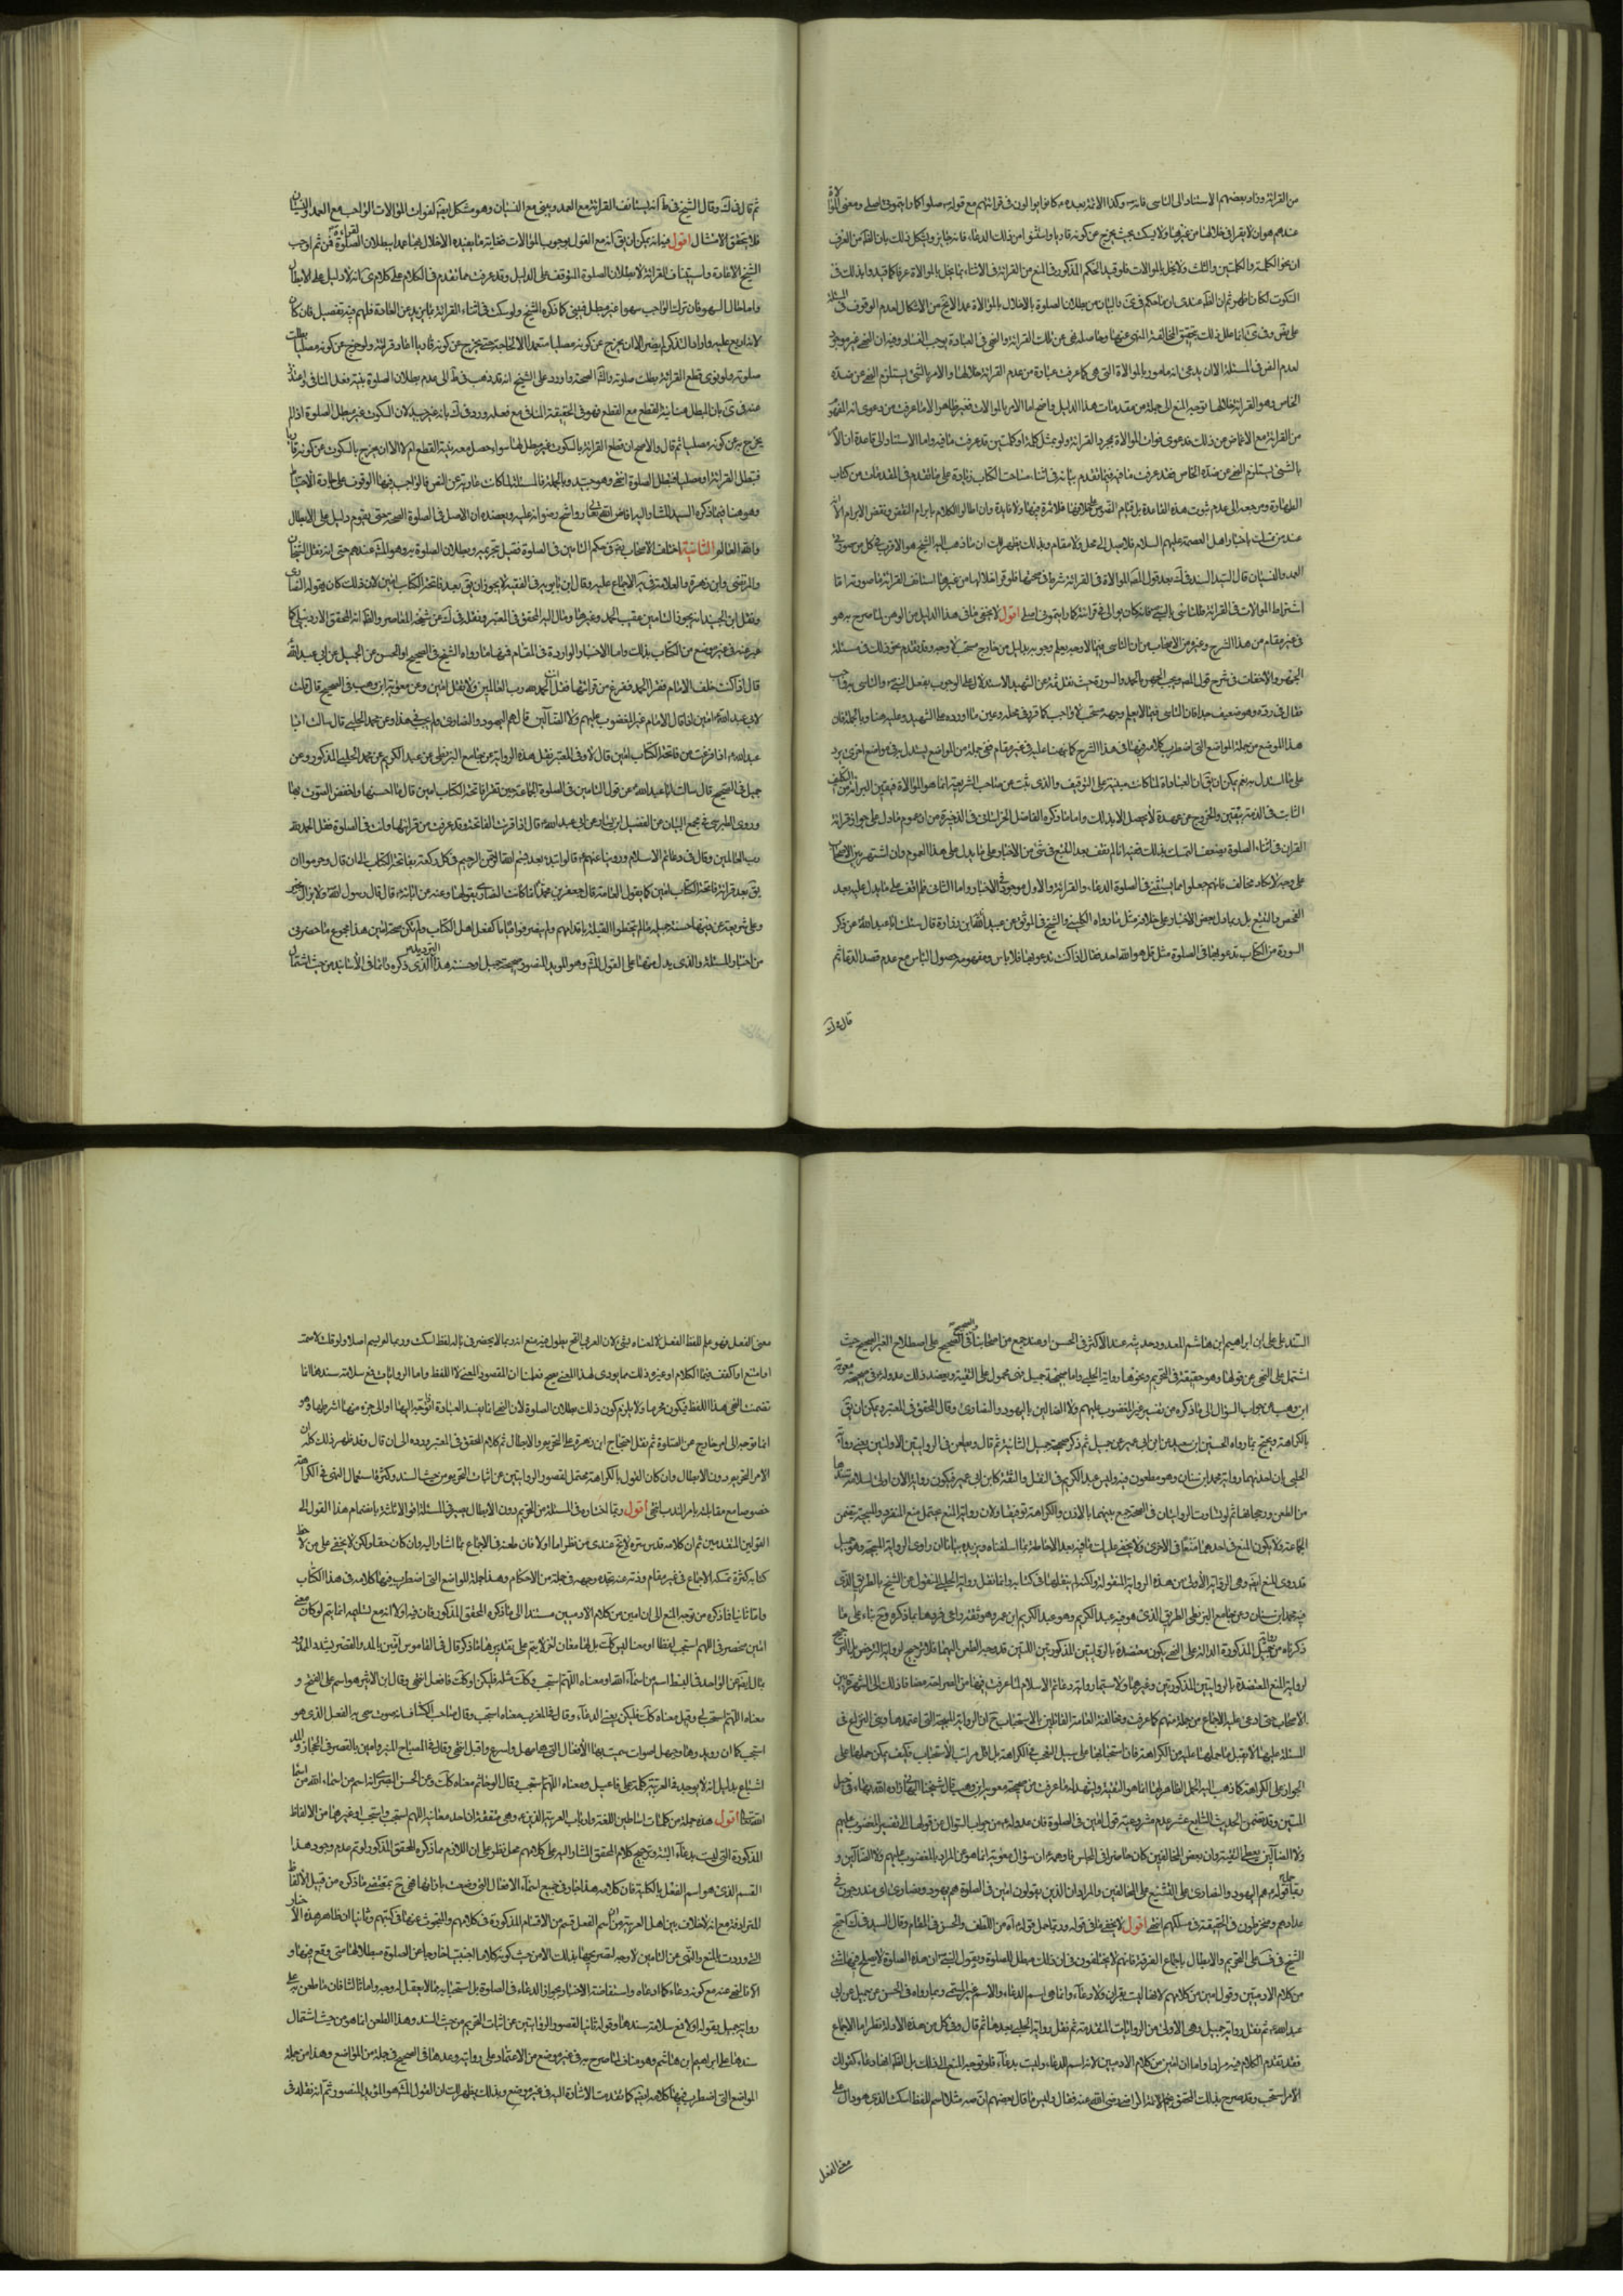 من القرائة وزاد بعضهم الاستناد الى التاسى فانه وكذا الائمة بعده كانوا يوالون فى قرائتهم مع قوله صلوا كما رايتمونى اصلى ومعنى الموالاة
عندهم هو ان لا يقرا فى خلالها من غيرها ولا يسكت بحيث يخرج عن كونه قاريا واستثنوا من ذلك الدعاء فانه جايز ويشكل ذلك بان الظ من العرف
ان نحو الكلمة والكلمتين والثلث ولا يخل بالموالات فلو قيد الحكم المذكور فى المنع من القرائة فى الاثناء بما يخل بالموالاة عرفا كما قيد وا بذلك فى
السكوت لكان اظهر ثم ان الظ عندى ان ما حكم فى والبيان من بطلان الصلوة بالاخلال بالموالاة عمدا لا يخ من الاشكال لعدم الوقوف فى المسئلة
على نص وفى انما علل ذلك بتحقق المخالفة المنهى عنها وحاصله نهى عن تلك القرائة والنهى فى العبادة يوجب الفساد وفيه ان النهى غير موجود
لعدم النص فى المسئلة الا ان يدعى انه مامور بالموالاة التى هى كما عرفت عبارة من عدم القرائة خلالها والامر بالشئ يستلزم النهى عن ضده
الخاص وهو القرائة خلالها توجه المنع الى جملة من مقدمات هذا الدليل واضح اما الامر بالموالات فغير ظاهر الا ما عرفت من دعوى انه المفهوم
من القرائة مع الاغماض من ذلك فدعوى فوات الموالاة بمجرد القرائة ولو بمثل كلمة او كلمتين قد عرفت ما فيه واما الاستناد الى قاعدة ان الامر
بالشئ يستلزم النهى عن ضده الخاص فقد عرفت ما فيه فيما تقدم بيانه فى اثناء مباحث الكتاب زيادة على ما تقدم فى المقدمات من كتاب
الطهارة ومرجعه الى عدم ثبوت هذه القاعدة بل قيام النصوص على خلافها فلا ثمرة فيها ولا فايدة وان اطالوا الكلام بابرام النقض ونقض الابرام الا
عند من قلت باخبار اهل العصمة عليهم السلام فلا عمل ولا مقام وبذلك يظهر لك ان ما ذهب اليه الشيخ هو الاقرب فى كل من صورتى
العمد والنسيان قال السيد السند فى ك بعد قول المص الموالاة فى القرائة شرط فى صحتها فلو قرا خلالها من غيرها استانف القرائة ما صورته اما
اشتراط الموالات فى القرائة فللتاسى بالنبى فانه كان يوالى فى قرائته كما رايتمونى اصلى اقول لا يخفى ما فى هذا الدليل من الوهن لما صرح به هو
فى غير مقام من هذا الشرح وغيره من الاصحاب من ان التاسى فيما لا وجه يعلم وجوبه بدليل من خارج مستحب لا وجه وقد تقدم نحو ذلك فى مسئلة
الجهر والاخفات فى شرح قول المص ويجب الجهر بالحمد والسورة حيث نقل ثمة عن الشهيد الاستدلال على الوجوب بفعل النبى والتاسى به واجب
فقال فى رده وهو ضعيف جدا فان التاسى فيما لا يعلم وجهه مستحب لا واجب كما قرر فى محله وعين ما اورده على الشهيد وعليه هنا وبالجملة فان
هذا الموضع من جملة المواضع التى اضطرب كلامه فيها فى هذا الشرح كما نبهنا عليه فى غير مقام فى جملة من المواضع يستدل به وفى مواضع اخرى يرد
على ما استدل به نعم يمكن ان يق ان العبادات لما كانت مبنية على التوقيف والذى ثبت من صاحب الشريعة انما هو الموالاة فيقين البراءة من التكليف
الثابت فى الذمة بيقين والخروج من عهدة لا يحصل الا بذلك واما ما ذكره الفاضل الخراسانى فى الذخيرة من ان عموم ما دل على جواز قرائة
القران فى اثناء الصلوة يضعف التمسك بذلك ففيه انا لم نقف بعد التتبع فى شئ من الاخبار على ما يدل على هذا العموم وان اشتهر بين الاصحاب
على وجه لا يكاد مخالف فانهم جعلوا مما يستثنى فى الصلوة الدعاء والقرائة والاول موجود فى الاخبار واما الثانى فلم اقف على ما يدل عليه بعد
الفحص والتتبع بل ربما دل بعض الاخبار على خلافه مثل ما رواه الكلينى والشيخ فى الموثق عن عبيد الله ابن زرارة قال سئلت ابا عبد الله عن ذكر
السورة من الكتاب ندعو بها فى الصلوة مثل قل هو الله احد فقال اذا كنت تدعو بها فلا باس ومفهومه حصول الباس مع عدم قصد الدعاء ثم
قال فى ك
ثم قال فى ك وقال الشيخ فى ط انه يستانف القرائة مع العمد ويبنى مع النسيان وهو مشكل ايضا لفوات الموالات الواجب مع العمد والنسيان
فلا يتحقق الامتثال اقول فيه انه يمكن ان يق انه مع القول بوجوب الموالات فغاية ما يفيده الاخلال بها عمدا بطلان القرائة لا الصلوة فمن ثم اوجب
الشيخ الاعادة واستيناف القرائة لا بطلان الصلوة لتوقفه على الدليل وقد عرفت مما تقدم فى الكلام على كلامى انه لا دليل على الابطال
واما حال السهو فان ترك الواجب سهوا غير مبطل فيبنى كما ذكره الشيخ ولو سكت فى اثناء القرائة بما يزيد عن العادة فلهم فيه تفصيل فان كان
لانه ارتج عليه واراد التذكر لم يضر الا ان يخرج عن كونه مصليا متعمدا الا لحاجة حتى يخرج عن كونه قاريا اعاد قرائته ولو خرج عن كونه مصليا بطلت
صلوته ولو نوى قطع القرائة بطلت صلوته والظ الصحة واورد على الشيخ انه قد ذهب فى ط الى عدم بطلان الصلوة بنية فعل المنافى واعتذر
عنه فى بان المبطل هنا نية القطع مع القطع فهو فى الحقيقة المنافى مع فعله ورده فى ك بانه غير جيد لان السكوت غير مبطل الصلوة اذا لم
يخرج به عن كونه مصليا ثم قال والاصح ان قطع القرائة بالسكوت غير مبطل لها سواء حصل معه بنية القطع ام لا الا ان يخرج بالسكوت عن كونه قاريا
فتبطل القرائة او مصليا فتبطل الصلوة انتهى وهو جيد وبالجملة فالمسئلة لما كانت عارية عن النص فالواجب فيها الوقوف على جادة الاحتياط
وهو هنا فيما ذكره السيد المشار اليه افاض الله تعالى رواشح رضوانه عليه ويعضده ان الاصل فى الصلوة الصحة حتى يقوم دليل على الابطال
والله العالم الثانية اختلف الاصحاب رض فى حكم التامين فى الصلوة فقيل بتحريمه وبطلان الصلوة به وهو الم عندهم حتى انه نقل الشيخان
والمرتضى وابن زهرة والعلامة فى يه الاجماع عليه وقال ابن بابويه فى الفقيه لا يجوز ان يق بعد فاتحة الكتاب امين لان ذلك كان يقوله النصارى
ونقل ابن الجنيد انه يجوز التامين عقيب الحمد وغيرها ومال اليه المحقق فى المعتبر ونقله فى ك عن شيخه المعاصر والظ انه المحقق الاردبيلى كما
عبر عنه فى غير موضع من الكتاب بذلك واما الاخبار الواردة فى المقام فمنها ما رواه الشيخ فى الصحيح او الحسن عن الجميل عن ابى عبد الله
قال اذا كنت خلف الامام فقرا الحمد ففرغ من قرائتها فقل انت الحمد لله رب العالمين ولا تقل امين وعن معوية ابن وهب فى الصحيح قال قلت
لابى عبد الله امين اذا قال الامام غير المغضوب عليهم ولا الضالين قال هم اليهود والنصارى ولم يجب فى هذا وعن محمد الحلبى قال سالت ابا
عبد الله اذا فرغت من فاتحة الكتاب امين قال لا وفى المعتبر نقل هذه الرواية من جامع البزنطى عن عبد الكريم عن محمد الحلبى المذكور وعن
جميل فى الصحيح قال سالت ابا عبد الله عن قول الناس فى الصلوة الجماعة حين تقرا فاتحة الكتاب امين قال ما احسنها واخفض الصوت بها
وروى الطبرسى فى مجمع البيان عن الفضيل ابن يسار عن ابى عبد الله قال اذا قرئت الفاتحة وقد فرغت من قرائتها وانت فى الصلوة فقل الحمد لله
رب العالمين وقال فى دعائم الاسلام وروينا عنهم قالوا يبتدء بعد بسم الله الرحمن الرحيم فى كل ركعة بفاتحة الكتاب الى ان قال وحرموا ان
يق بعد قرائة فاتحة الكتاب امين كما يقول العامة قال جعفر بن محمد انما كانت النصارى تقولها وعنه عن ابائه قال قال رسول الله لا يزال امتى بخير
وعلى شريعة من دينها حسنة جميلة ما لم يتخطوا القبلة باقدامهم ولم ينصرفوا قياما كفعل اهل الكتاب ولم تكن ضجة امين هذا مجموع ما حضرنى
من اخبار المسئلة والذى يدل منها على القول الم وهو المؤيد المنصور صحيحة جميل او حسنة هذا الترديد الذى ذكره دائما فى الاسانيد من حيث اشتمال
السند على على ابن ابراهيم ابن هاشم المعدود حديثه عند الاكثر فى الحسن او عند جمع من اصحابنا فى الصحيح على اصطلاح الغير الصحيح حيث
اشتمل على النهى عن قولها وهو حقيقة فى التحريم ونحوها رواية الحلبى واما صحيحة جميل فهى محمول على التقية ويعضد ذلك عدوله فى صحيحة معوية
ابن وهب عن جواب السؤال الى ما ذكره من تفسير غير المغضوب عليهم ولا الضالين باليهود والنصارى وقال المحقق فى المعتبر يمكن ان يق
بالكراهة ويحتج بما رواه الحسين ابن سعيد عن ابن ابى عمير عن جميل ثم ذكر صحيحة جميل الثانية ثم قال وطعن فى الروايتين الاولتين يعنى رواية
الحلبى بان احدهما رواية محمد ابن سنان وهو مطعون فيه وليس عبد الكريم فى النقل والثقة كابن ابى عمير فيكون رواية الاذن اولى لسلامة سندها
من الطعن ورجحانها ثم لو تساوت الروايتان فى الصحة جمع بينهما بالاذن والكراهة توفيقا ولان رواية المنع يحتمل منع المنفرد والمبيحة يتضمن
الجماعة ولا يكون المنع فى احدهما منعا فى الاخرى ولا يخفى عليك ما فيه بعد الاحاطة بما اسلفناه ويزيده بيانا ان راوى الرواية المبيحة وهو جميل
قد روى المنع ايضا وهى الرواية الاولى من هذه الرواية المنقولة ولكنه لم ينقلها فى كتابه وانما نقل رواية الحلبى المنقول عن الشيخ بالطريق الذى
فيه محمد ابن سنان وعن جامع البزنطى الطريق الذى هو فيه عبد الكريم وهو عبد الكريم ابن عمر وهو ثقة وادعى فردها بما ذكره وح بناء على ما
ذكرناه من رواية جميل المذكورة الدالة على النهى يكون معتضدة بالروايتين المذكورتين اللتين قد وجه الطعن اليهما فلا ترجيح لرواية الترخص على الترجيح
لرواية المنع المعتضدة بالروايتين المذكورتين وغيرها ولا سيما رواية دعائم الاسلام لما عرفت فيها من الصراحة مضافا ذلك الى الشهرة بين
الاصحاب حتى ادعى عليه الاجماع من جملة منهم كما عرفت ومخالفة العامة القائلين بالاستحباب ح ان الرواية المبيحة التى اعتمدها وبنى النزاع فى
المسئلة عليها لا يقبل ما حملها عليه من الكراهة فان استحبابها على سبيل التعجب فى الكراهة بل اقل مراتب الاستحباب فكيف يمكن حملها على
الجواز على الكراهة كما ذهب اليه الحمل الظاهر لها انما هو التقية وليشهد له ما عرفت من صحيحة معوية ابن وهب قال شيخنا البهائى زاده الله بهاء فى حبل
المتين وقد تضمن الحديث السابع عشر عدم مشروعية قول امين فى الصلوة فان عدوله من جواب السؤال عن قولها الى تفسير المغضوب عليهم
ولا الضالين يعطى التقية وان بعض المخالفين كان حاضرا فى المجلس فاوهمه ان سؤال معوية انما هو عن المراد بالمغضوب عليهم ولا الضالين و
ربما حمل قوله هم اليهود والنصارى على التشنيع على المخالفين والمراد ان الذين يقولون امين فى الصلوة هم يهود ونصارى اى مندرجون فى
عدادهم ومنخرطون فى الحقيقة فى سلكهم انتهى اقول لا يخفى ما فى قوله وربما حمل قوله الى اه من اللطف والحسن فى المقام وقال السيد فى ك احتج
الشيخ فى ف على التحريم والابطال باجماع الفرقة فانهم لا يختلفون فى ان ذلك مبطل للصلوة وبقول النبى ان هذه الصلوة لا يصلح فيها شئ
من كلام الادميين وقول امين من كلامهم لانها ليست بقران ولا دعاء وانما هى اسم الدعاء والاسم غير المسمى وبما رواه فى الحسن عن جميل عن ابى
عبد الله ثم نقل رواية جميل وهى الاولى من الروايات المتقدمة ثم نقل رواية الحلبى بعدها ثم قال وفى كل من هذه الادلة نظر اما الاجماع
فقد تقدم الكلام فيه مرارا واما ان امين من كلام الادميين لانه اسم الدعاء وليست بدعاء فلو توجه المنع الى ذلك بل الظ انها دعاء كقولك
اللهم استجب وقد صرح بذلك المحقق نجم الائمة الرضى رضى الله عنه فقال وليس ما قال بعضهم ان صه مثلا اسم للفظ اسكت الذى هو دال على
معنى الفعل
معنى الفعل فهو علم للفظ الفعل لا لمعناه بشئ لان العربى القح يقول صه مع انه ربما لا يحضر فى باله لفظ اسكت وربما لم يسمعه اصلا ولو قلت لاصمت
او امتنع او اكفف فيها الكلام او غيره ذلك مما يؤدى لهذا المعنى صح فعلمنا ان المقصود المعنى لا اللفظ واما الروايتان فمع سلامة سندهما انما
تضمنت النهى هذا اللفظ فيكون محرما ولا يلزم كون ذلك بطلان الصلوة لان النهى انما يفسد العبادة اذا توجه اليها او الى جزء منها اشرطها وهو
انما توجه الى امر خارج عن الصلوة ثم نقل احتجاج ابن زهرة على التحريم والابطال ثم كلام المحقق فى المعتبر ورده الى ان قال وقد ظهر ذلك كله ان
الامر التحريم دون الابطال وان كان القول بالكراهة محتمل لقصور الروايتين عن اثبات التحريم من حيث السند وكثرة استعمال النهى فى الكراهة
خصوصا مع مقابلته بامر الندب انتهى اقول وبما اختاره فى المسئلة من التحريم دون الابطال يصير فى المسئلة اقوالا ثلثة باعتبار هذا القول الى
القولين المتقدمين ثم ان كلامه قدس سره لا يخ عندى من نظر اما اولا فان طعنه فى الاجماع بما اشار اليه وان كان حقا ولكن لا يخفى على من لاحظ
كتابه كثرة تمسكه الاجماع فى غير مقام وذبه عنه عنده وجمعه فى جملة من الاحكام وهذا جملة المواضع التى اضطرب فيها كلامه فى هذا الكتاب
واما ثانيا فما ذكره من توجه المنع الى ان امين من كلام الادميين مستندا الى ما ذكره المحقق المذكور فان فيه اولا انه مع تسليمه انما يتم لو كان معنى
امين منحصر فى اللهم استجب لفظا او معنا ليس كك بل لها معان اخر لا يتم على تقديرها ما ذكر قال فى القاموس امين بالمد والقصر يشدد الممدود
يمال ايضا عن الواحد فى البسيط اسم من اسماء الله او معناه اللهم استجب وكك مثله فليكن او كك فافعل انتهى وقال ابن الاثير هو اسم على الفتح و
معناه اللهم استجب لى وقيل معناه كك فليكن يعنى الدعاء وقال فى المغرب معناه استجب وقال صاحب الكشاف انه صوت سمى به الفعل الذى هو
استجب كما ان رويد وهلا وحيهل اصوات سميت بها الافعال التى هى امهل واسرع واقبل انتهى وقال فى المصباح المنير وامين بالقصر فى الحجاز والمد
اشباع بدليل انه لا يوجد فى العربية كلمة على فاعيل ومعناه اللهم استجب وقال ابو حاتم معناه كك وعن الحسن البصرى انه اسم من اسماء الله من
انتهى اقول هذه جملة من كلمات اساطين اللغة وارباب العربية الذين وهى متفقة ان احد معانيه اللهم استجب واستجب او غيرها من الالفاظ
المذكورة التى ليست بدعاء البتة وترجيح كلام المحقق المشار اليه على كلامهم محل نظر على ان اللازم مما ذكره المحقق المذكور لو تم عدم وجود هذا
القسم الذى هو اسم الفعل بالكلية فان كلامه هذا جار فى جميع اسماء الافعال التى وضعت بازائها فهى ح بمقتضى ما ذكره من قبيل الالفاظ
المترادفة مع انه لا خلاف بين اهل العربية من ان اسم الفعل قسم من الاقسام المذكورة فى كلامهم والمبحوث عنها فى كتبهم وثانيا ان ظاهر هذه الاخبار
التى وردت بالمنع والنهى عن التامين لا وجه لتصريحها بذلك الا من حيث كونه كلاما اجنبيا خارجا عن الصلوة مبطلا لها متى وقع فيها و
الا فالنهى عنه مع كونه دعاء كما ادعاه واستفاضة الاخبار بجواز الدعاء فى الصلوة بل استحبابه مما لا يعقل له وجه واما ثالثا فان ما طعن به على
رواية جميل بقوله اولا فمع سلامة سندها وقوله ثانيا القصور الروايتين عن اثبات التحريم من حيث السند وهذا الطعن انما هو من حيث اشتمال
سندها على ابراهيم ابن هاشم وهو مناف لما صرح به فى غير موضع من الاعتماد على روايته وعدها فى الصحيح فى جملة من المواضع وهذا من جملة
المواضع التى اضطرب فيها كلامه ايضا كما تقدمت الاشارة اليه فى غير موضع وبذلك يظهر لك ان القول الم هو المؤيد المنصور ثم انه نقله فى